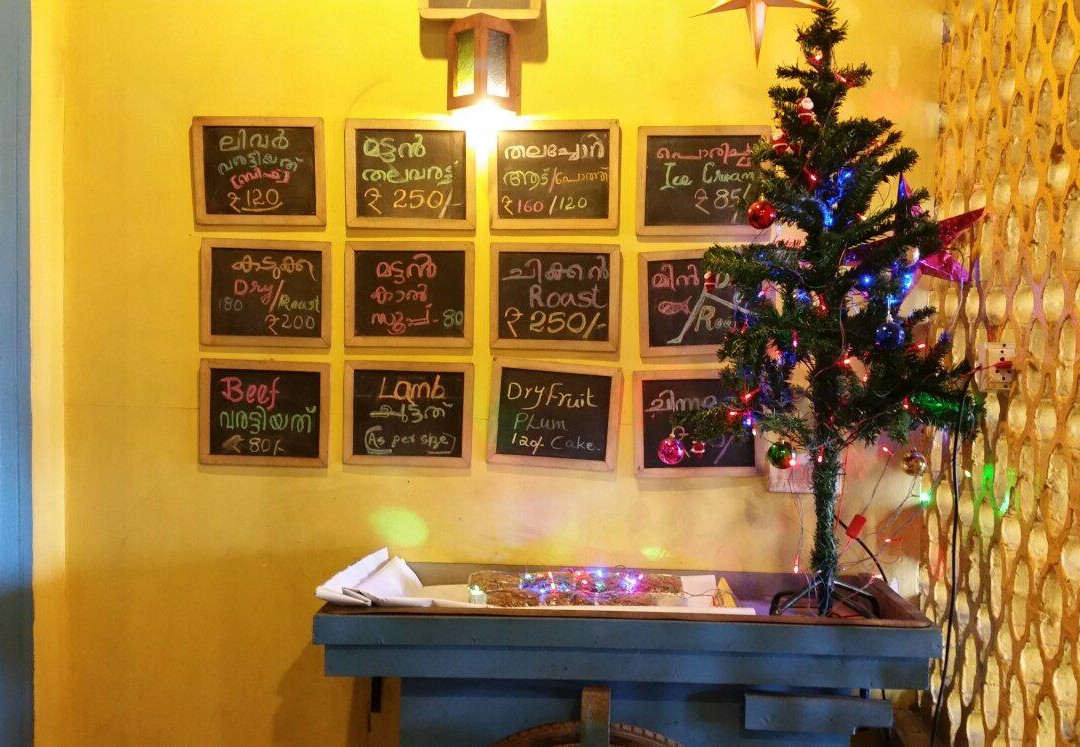 ലിവർ
വരട്ടിയത്
₹ 120
മട്ടൻ
തലവരട്ട്
₹ 250/-
തലച്ചോറ്
ആട്/പോത്ത്
₹160/120
Ice Cream
₹85/
കടുക്ക
Dry/Roast
180
₹200
മട്ടൻ
കാൽ
സൂപ്പ്-80
ചിക്കൻ
Roast
₹250/-
മീൻ
Beef
വരട്ടിയത്
₹80/-
Lamb
ചുട്ടത്
(As per size)
Dryfruit
Plum
120/- Cake.